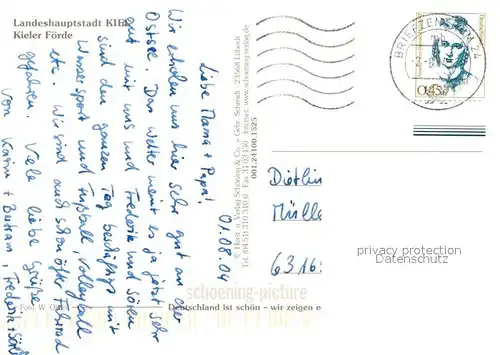 Landeshauptstadt KIEL
Kieler Förde
Liebe Mama + Papa! 01.08.04
Wir erholen uns hier sehr gut an der
Ostsee. Das Wetter meint es ja jetzt sehr
gut mit uns und Frederik und Sören
sind den ganzen Tag beschäftigt mit
Wassersport und Fußball, Volleyball
etc. Wir sind auch schon öfter Fahrrad
gefahren. Viele liebe Grüße
von Karin + Frederik + Sören
© Horst u. Verlag Schöning & Co. + Gebr. Schmidt · 23558 Lübeck
Tel. (0451) 310310 Fax 310 Internet: www.schoening-verlag.de
001.24100.1525
BRIEFZENTRUM 24
Deutschland
0,45
Dietlin
Mülle
6316
privacy protection
Datenschutz
schoening-picture
Foto W
Deutschland ist schön – wir zeigen e